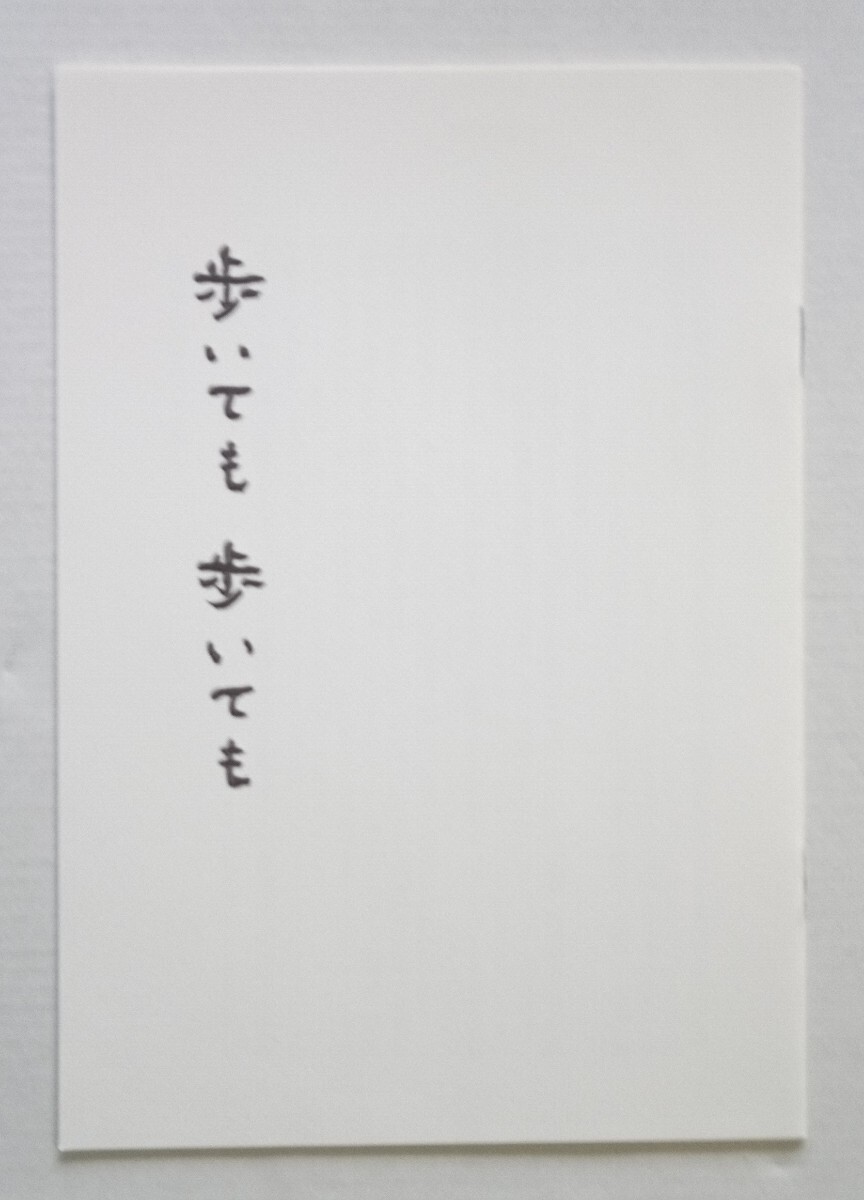 歩いても 歩いても